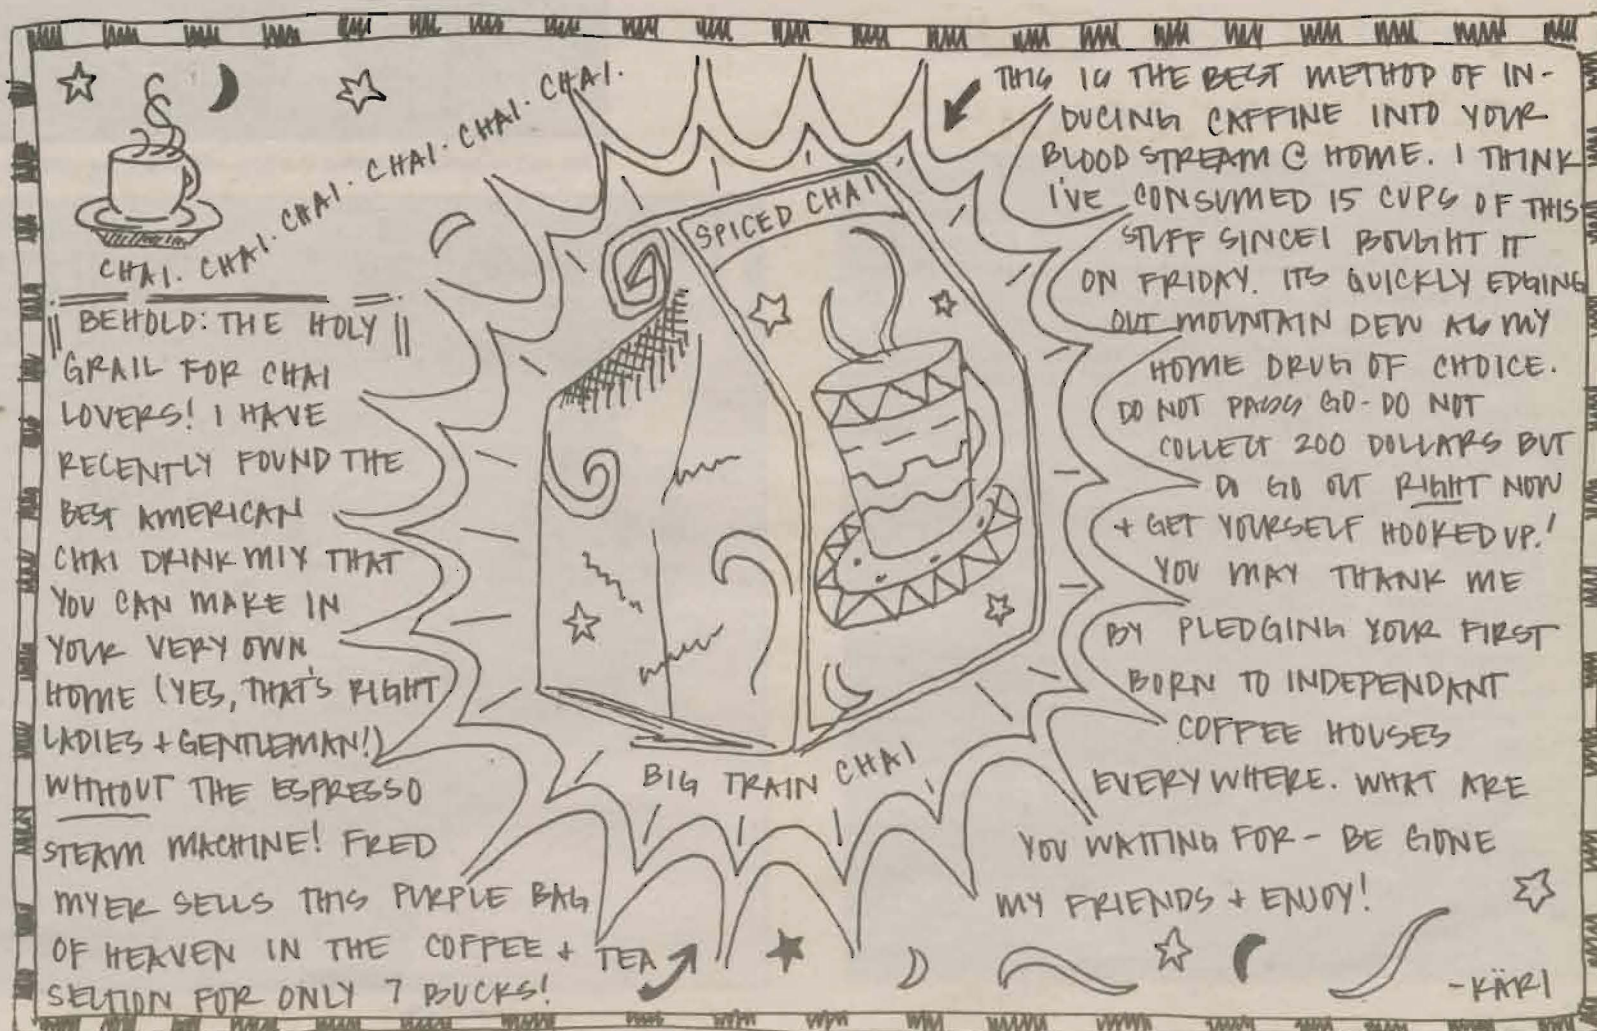 CHAI. CHAI. CHAI. CHAI. CHAI. CHAI. CHAI.
BEHOLD: THE HOLY
GRAIL FOR CHAI
LOVERS! I HAVE
RECENTLY FOUND THE
BEST AMERICAN
CHAI DRINK MIX THAT
YOU CAN MAKE IN
YOUR VERY OWN
HOME (YES, THAT'S RIGHT
LADIES + GENTLEMAN!)
WITHOUT THE ESPRESSO
STEAM MACHINE! FRED
MYER SELLS THIS PURPLE BAG
OF HEAVEN IN THE COFFEE + TEA
SECTION FOR ONLY 7 BUCKS!
SPICED CHAI
BIG TRAIN CHAI
THIS IS THE BEST METHOD OF IN-
DUCING CAFFINE INTO YOUR
BLOOD STREAM @ HOME. I THINK
I'VE CONSUMED 15 CUPS OF THIS
STUFF SINCE I BOUGHT IT
ON FRIDAY. ITS QUICKLY EDGING
OUT MOUNTAIN DEW AS MY
HOME DRUG OF CHOICE.
DO NOT PASS GO - DO NOT
COLLECT 200 DOLLARS BUT
DO GO OUT RIGHT NOW
+ GET YOURSELF HOOKED UP!
YOU MAY THANK ME
BY PLEDGING YOUR FIRST
BORN TO INDEPENDANT
COFFEE HOUSES
EVERYWHERE. WHAT ARE
YOU WAITING FOR - BE GONE
MY FRIENDS + ENJOY!
-KÄRI